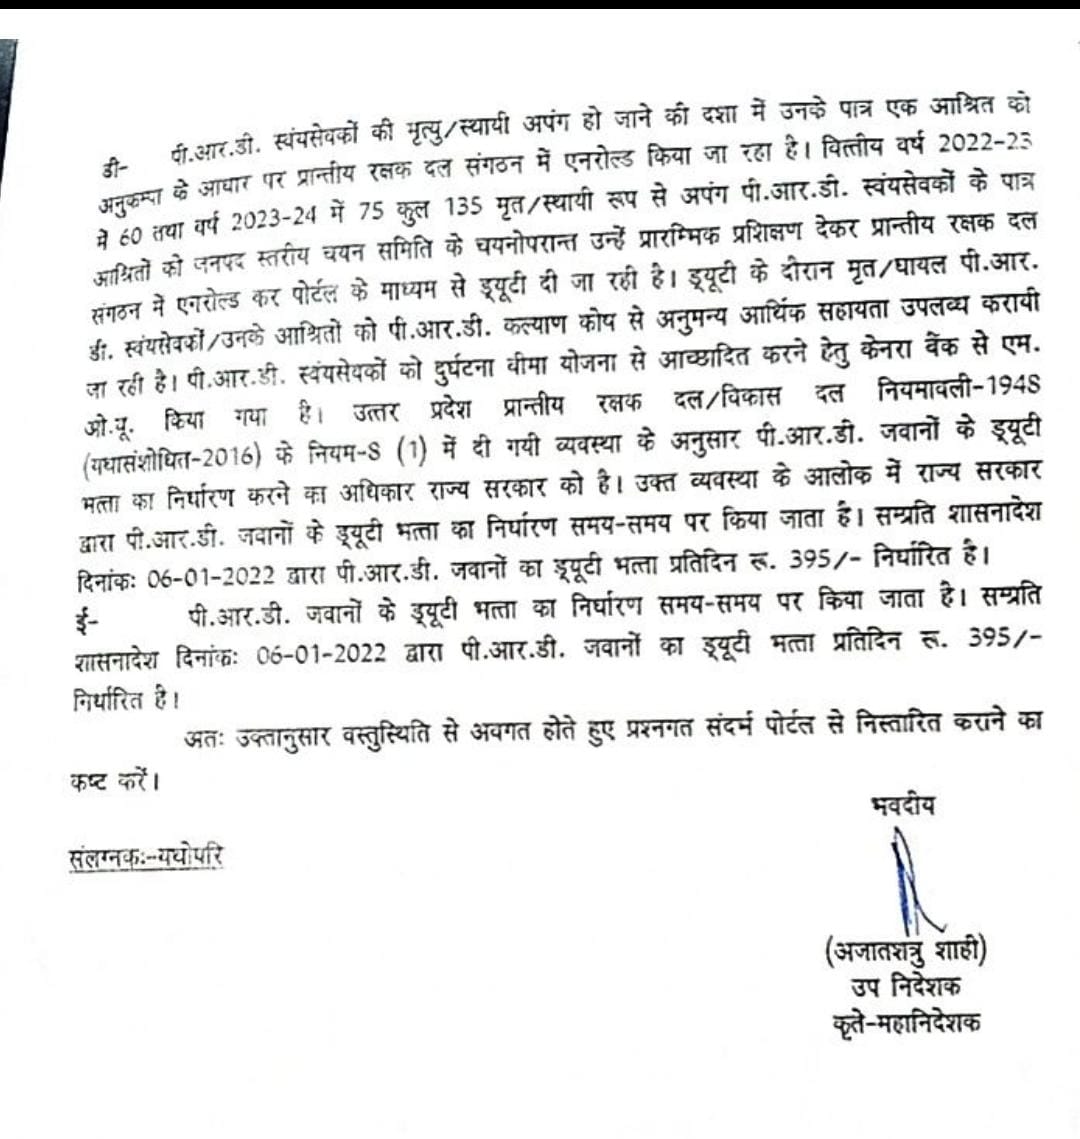 डी- पी.आर.डी. स्वंयसेवकों की मृत्यु/स्थायी अपंग हो जाने की दशा में उनके पात्र एक आश्रित को
अनुकम्पा के आधार पर प्रान्तीय रक्षक दल संगठन में एनरोल्ड किया जा रहा है। वित्तीय वर्ष 2022-23
में 60 तथा वर्ष 2023-24 में 75 कुल 135 मृत/स्थायी रूप से अपंग पी.आर.डी. स्वंयसेवकों के पात्र
आश्रितों को जनपद स्तरीय चयन समिति के चयनोपरान्त उन्हें प्रारम्भिक प्रशिक्षण देकर प्रान्तीय रक्षक दल
संगठन में एनरोल्ड कर पोर्टल के माध्यम से ड्यूटी दी जा रही है। ड्यूटी के दौरान मृत/घायल पी.आर.
डी. स्वंयसेवकों/उनके आश्रितों को पी.आर.डी. कल्याण कोष से अनुमन्य आर्थिक सहायता उपलब्ध करायी
जा रही है। पी.आर.डी. स्वंयसेवकों को दुर्घटना बीमा योजना से आच्छादित करने हेतु केनरा बैंक से एम.
ओ.यू. किया गया है। उत्तर प्रदेश प्रान्तीय रक्षक दल/विकास दल नियमावली-1948
(यथासंशोधित-2016) के नियम-8 (1) में दी गयी व्यवस्था के अनुसार पी.आर.डी. जवानों के ड्यूटी
भत्ता का निर्धारण करने का अधिकार राज्य सरकार को है। उक्त व्यवस्था के आलोक में राज्य सरकार
द्वारा पी.आर.डी. जवानों के ड्यूटी भत्ता का निर्धारण समय-समय पर किया जाता है। सम्प्रति शासनादेश
दिनांकः 06-01-2022 द्वारा पी.आर.डी. जवानों का ड्यूटी भत्ता प्रतिदिन रू. 395/- निर्धारित है।
ई- पी.आर.डी. जवानों के ड्यूटी भत्ता का निर्धारण समय-समय पर किया जाता है। सम्प्रति
शासनादेश दिनांकः 06-01-2022 द्वारा पी.आर.डी. जवानों का ड्यूटी भत्ता प्रतिदिन रू. 395/-
निर्धारित है।
अतः उक्तानुसार वस्तुस्थिति से अवगत होते हुए प्रश्नगत संदर्भ पोर्टल से निस्तारित कराने का
कष्ट करें।
भवदीय
संलग्नकः-यथोपरि
(अजातशत्रु शाही)
उप निदेशक
कृते-महानिदेशक